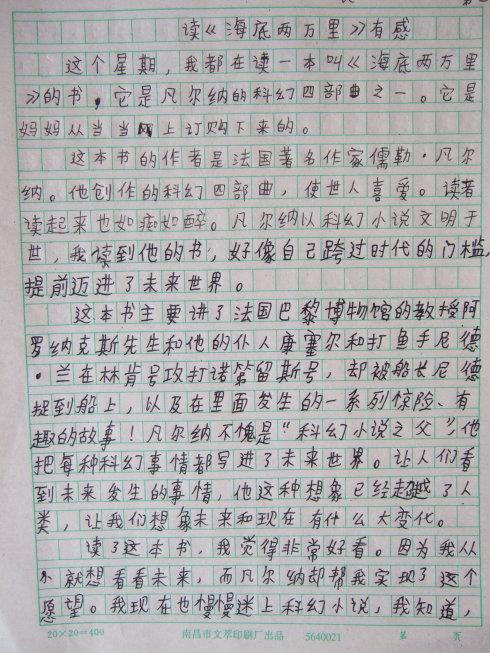 读《海底两万里》有感
这个星期，我都在读一本叫《海底两万里
》的书，它是凡尔纳的科幻四部曲之一。它是
妈妈从当当网上订购下来的。
这本书的作者是法国著名作家儒勒·凡尔
纳。他创作的科幻四部曲，使世人喜爱。读着
读起来也如痴如醉。凡尔纳以科幻小说文明于
世，我读到他的书，好像自己跨过时代的门槛，
提前迈进了未来世界。
这本书主要讲了法国巴黎博物馆的教授阿
罗纳克斯先生和他的仆人康塞尔和打鱼手尼德
·兰在林肯号攻打诺第留斯号，却被船长尼德
捉到船上，以及在里面发生的一系列惊险、有
趣的故事！凡尔纳不愧是“科幻小说之父”，他
把每种科幻事情都写进了未来世界。让人们看
到未来发生的事情，他这种想象已经超越了人
类，让我们想象未来和现在有什么大变化。
读了这本书，我觉得非常好看。因为我从
小就想看看未来，而凡尔纳却帮我实现了这个
愿望。我现在也慢慢迷上科幻小说，我知道，
20×20=400 南昌市文萃印刷厂出品 5640021 第 页